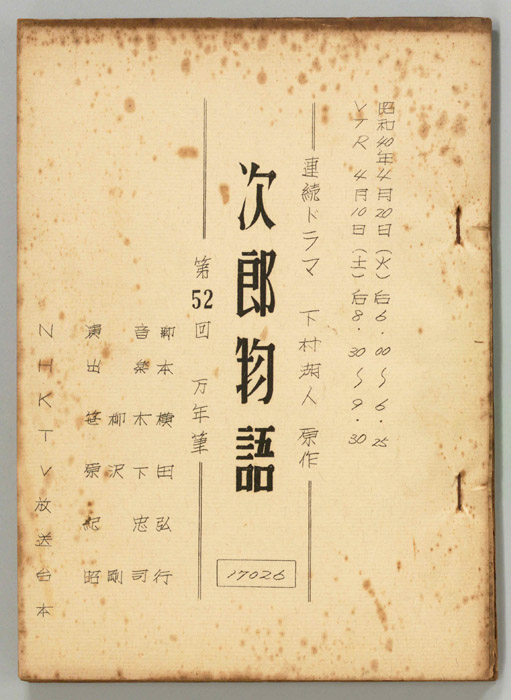 昭和40年4月20日(火)后6.00〜6.25
VTR 4月10日(土)后8.30〜9.30
連続ドラマ 下村湖人 原作
次郎物語
17026
第52回 万年筆
脚本 横田弘行
音楽 木下忠司
柳沢剛
演出 笹原紀昭
NHKTV放送台本